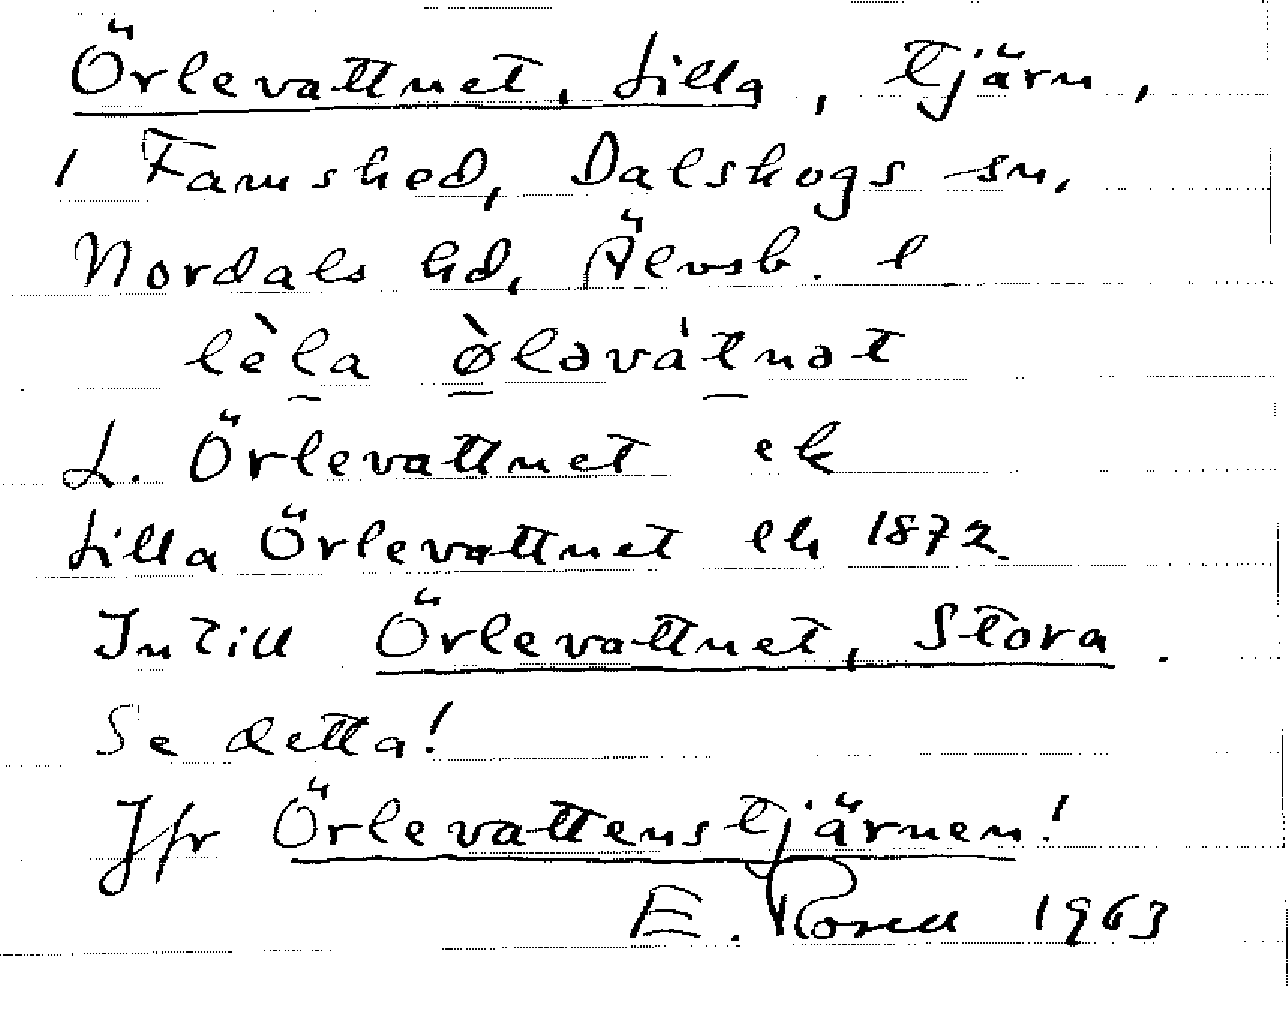 Örlevattnet, Lilla, tjärn,
i Famshed, Dalskogs sn,
Nordals hd, Älvsb. l
lèla ø̀ləvátnət
L. Örlevattnet ek
Lilla Örlevattnet ek 1872
Intill Örlevattnet, Stora.
Se detta!
Jfr Örlevattenstjärnen!
E. Rosell 1963